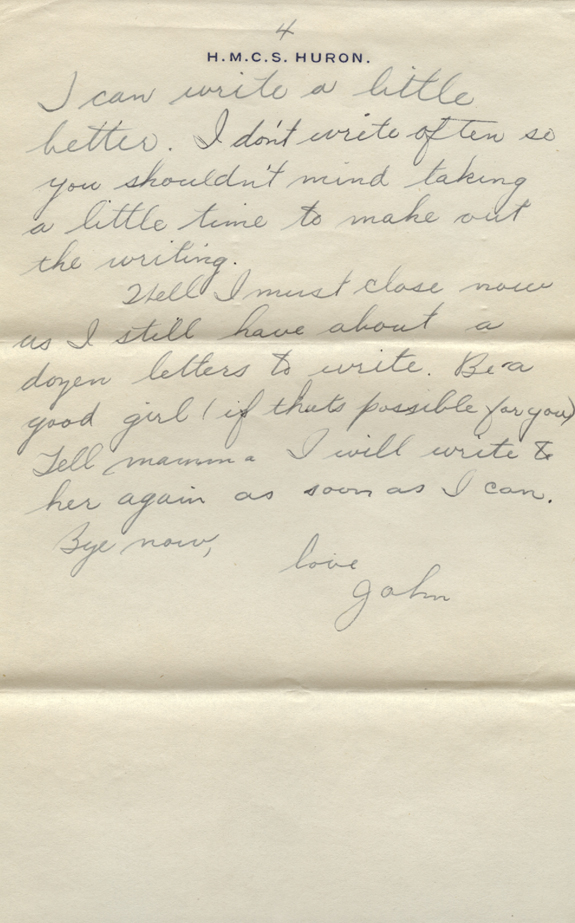 4
H.M.C.S. HURON.
I can write a little
better. I don't write often so
you shouldn't mind taking
a little time to make out
the writing.
Well I must close now
as I still have about a
dozen letters to write. Be a
good girl (if thats possible for you)
Tell mamma I will write to
her again as soon as I can.
Bye now,
love
John